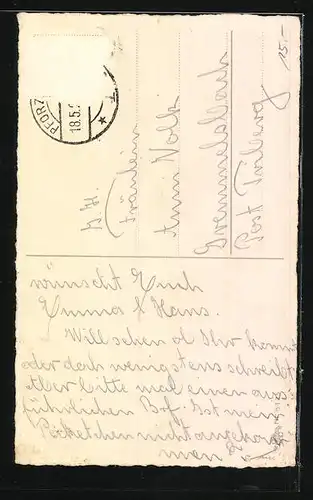 PFORZ
18.5.2
15.-
h. H.
Fräulein
Anni Volk
Gremmelsbach
Post Triberg
wünscht Euch
Emma & Hans.
Will sehen ob Ihr kommt
oder doch wenigstens schreibt.
Aber bitte mal einen aus-
führlichen Brf. Ist mein
Packetchen nicht angekom-
men?